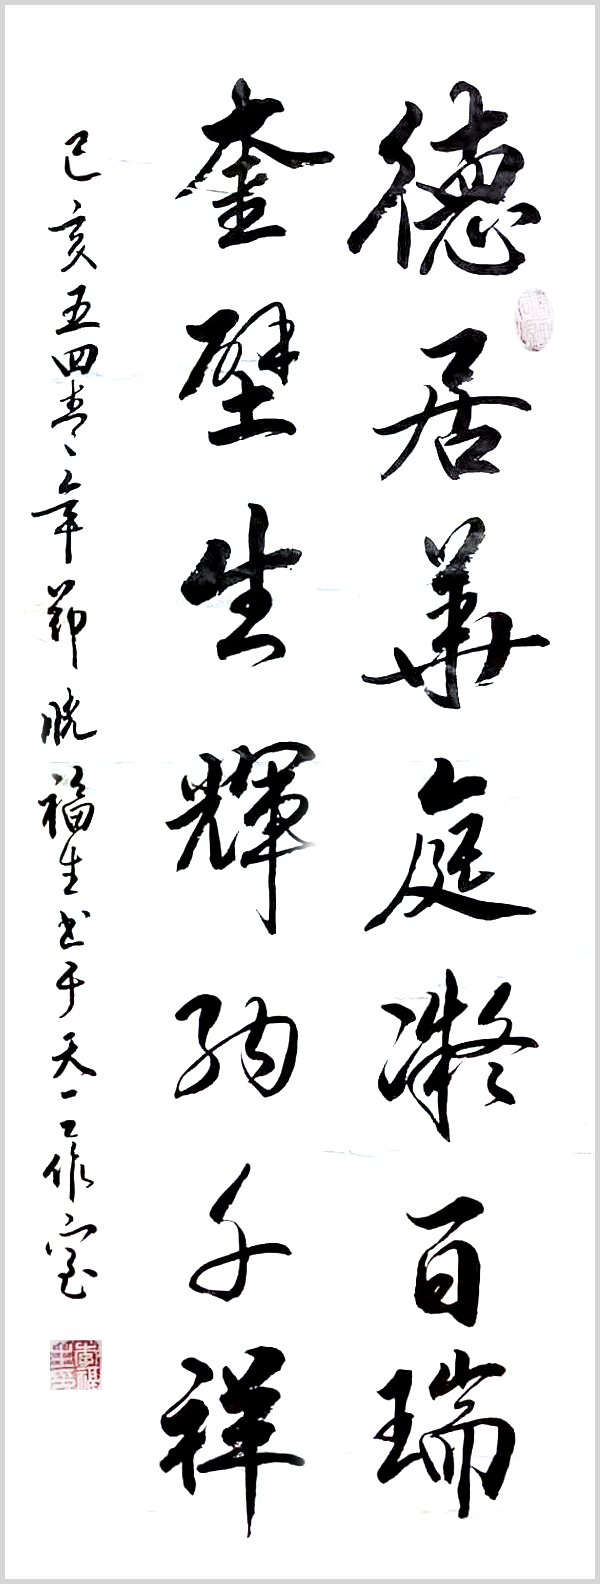 德居華庭凝百瑞
奎壁生輝納千祥
己亥五四青年節 曉福生书于天一工作室